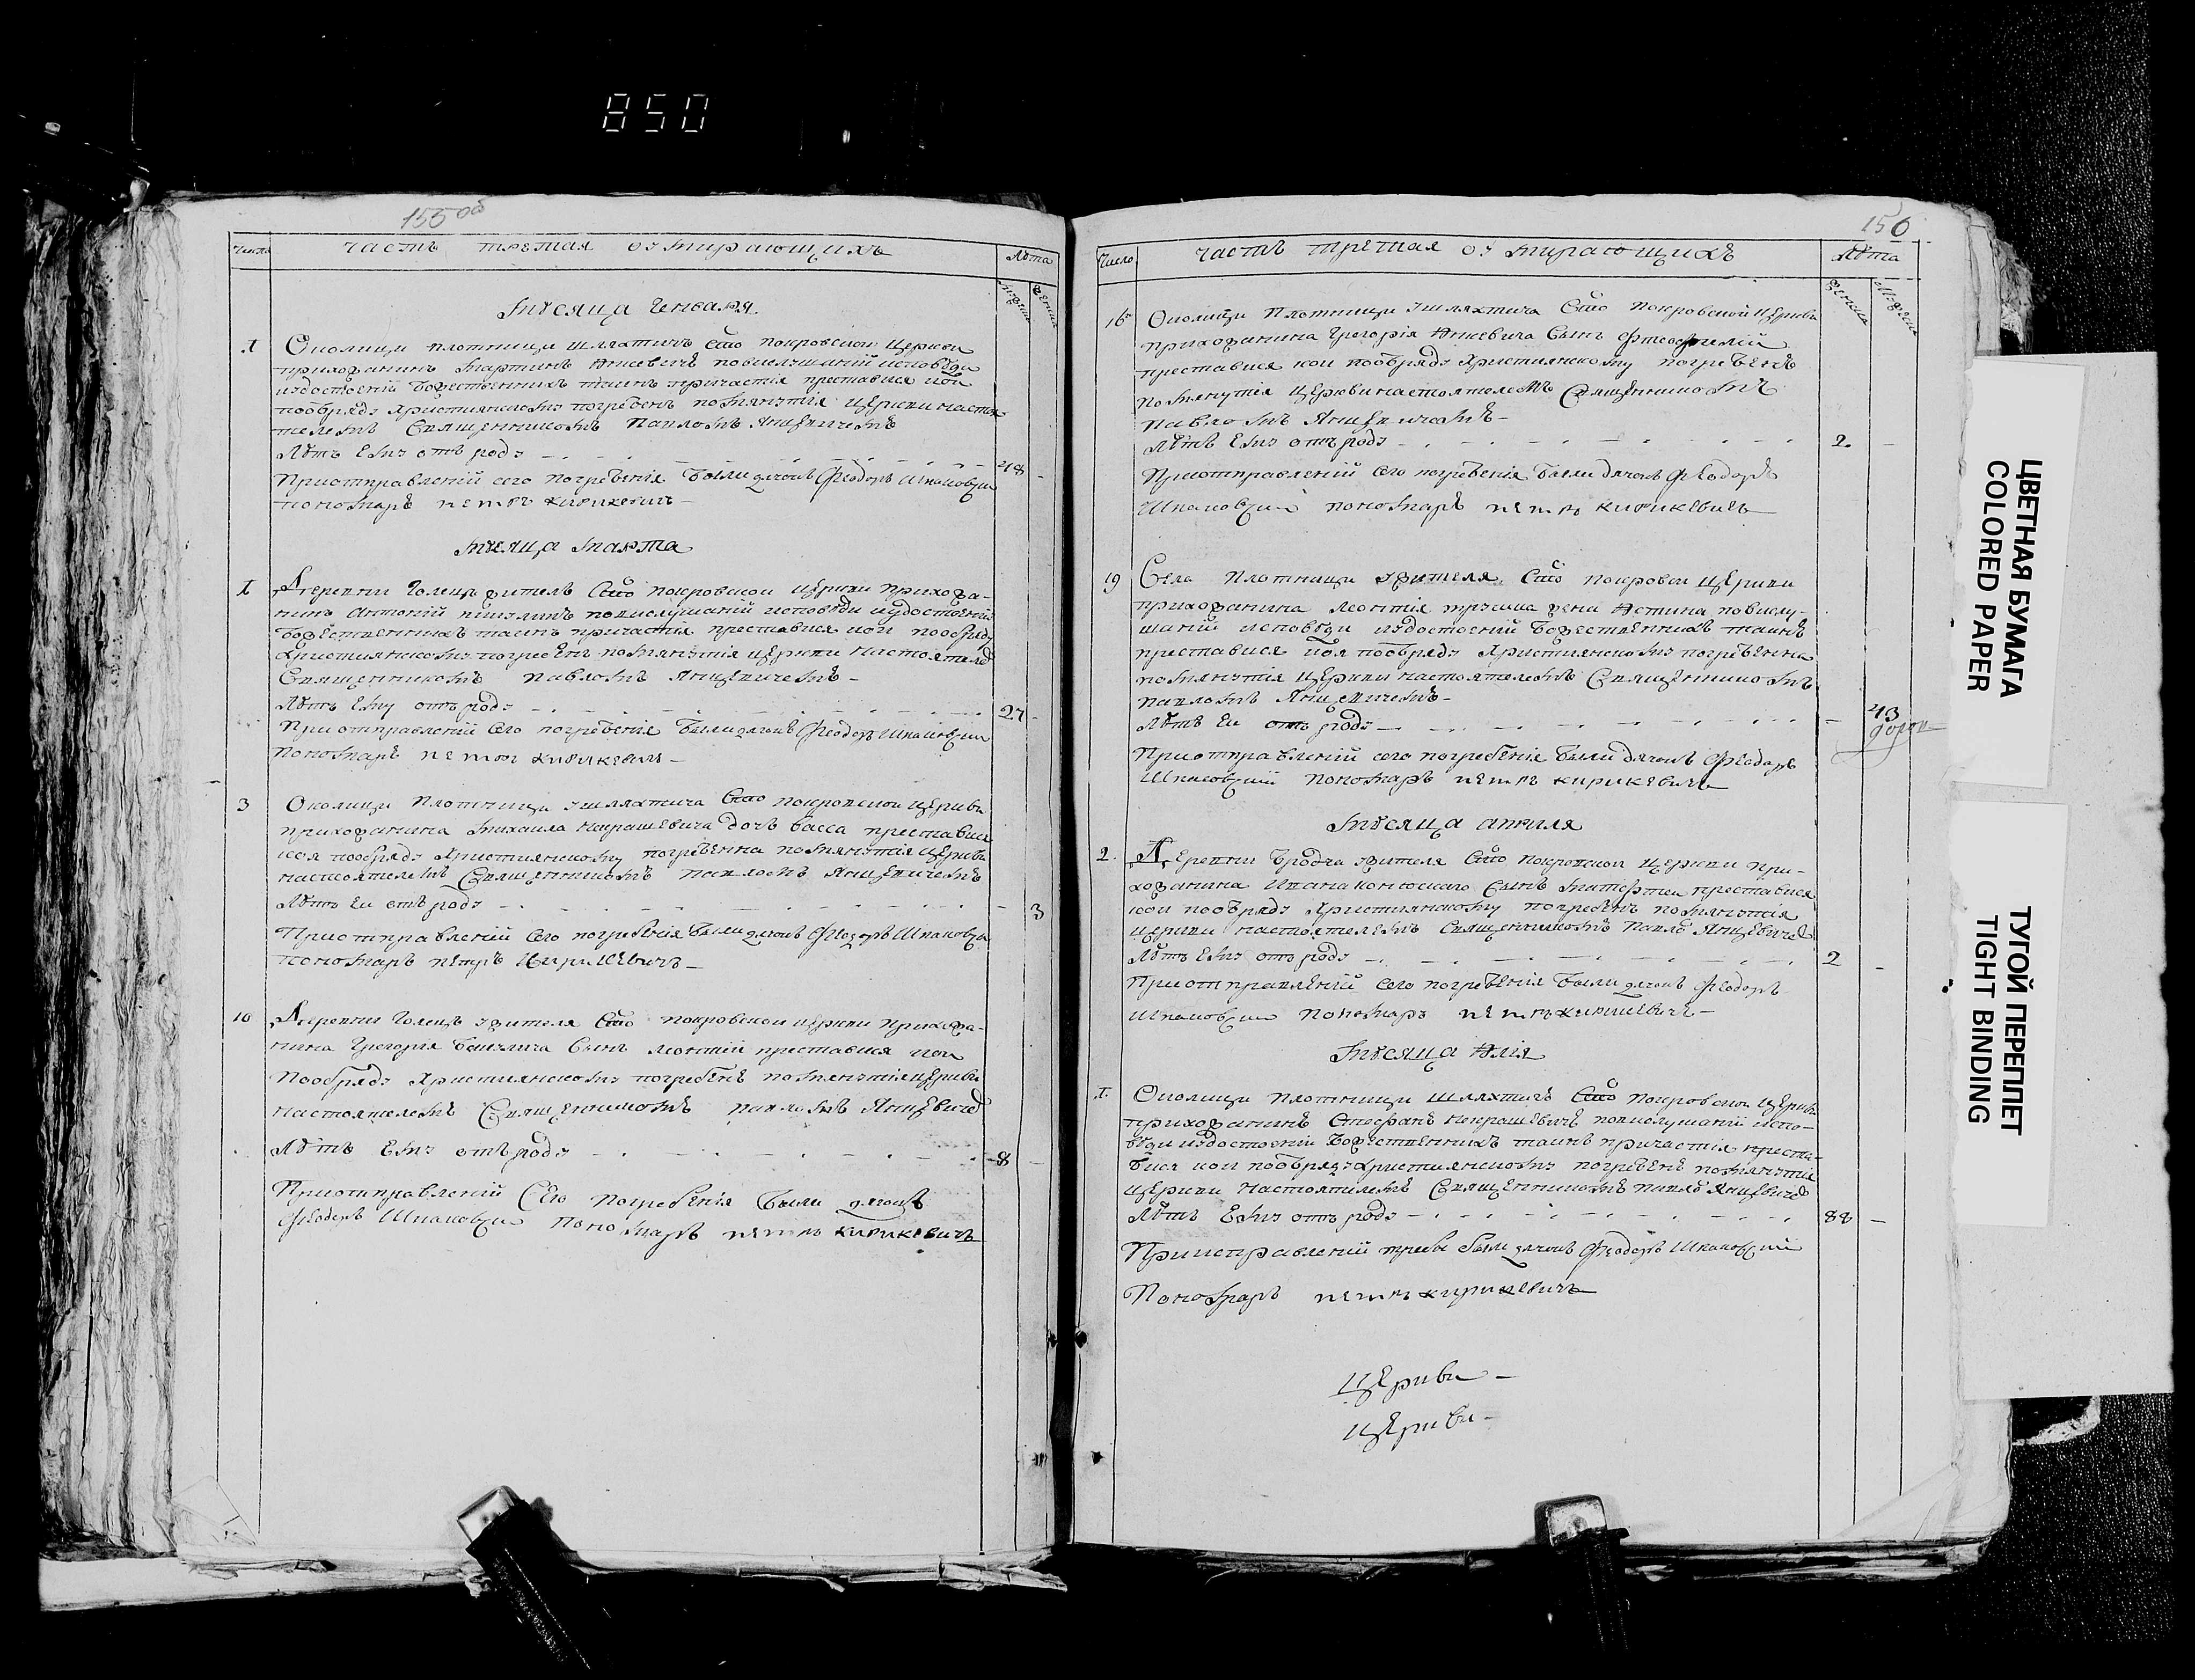 850
155 об
Число часть третая оумирающихъ Лѣта
Мѣсяца Генваря
Околици Плотници шляхтичъ Сто Покровской Церкви
прихожанинъ Мартинъ повислушаній исповѣди
издостоеній Божественнихъ таинъ причастія преставися кой
пообряду Християнскому погребенъ помянутія Церкви насто
телемъ Священникомъ Павломъ Янцевичемъ
Лѣтъ Ему отъ роду 48
Приотправленій сего погребенія были дячокъ Феодоръ Шпаковски
пономаръ петръ кирикевичъ
Мѣсяца Марта
Деревни Голецъ житель Сто Покровской Церкви прихожа-
нинъ Антоній повислушаній исповѣди издостоеній
Божественнихъ таинъ причастія преставися кой пообряду
Християнскому погребенъ помянутія Церкви настоятеле
Священникомъ Павломъ Янцевичемъ
Лѣтъ Ему отъ роду 27
Приотправленій Сего погребенія были дячокъ Феодоръ Шпаковски
Пономаръ петръ кирикевичъ
3 Околици Плотници шляхтича Сто Покровской Церкви
прихожанина Михаила Некрашевича дочь васса преставися
коя пообряду Християнскому погребенна помянутія Церкви
настоятелемъ Священникомъ Павломъ Янцевичемъ
Лѣтъ Еи отъ роду 3
Приотправленій Сего погребенія были дячокъ Феодоръ Шпаковски
пономаръ петръ Кирикевичъ
10 Деревни Голецъ жителя Сто Покровской церкви прихожа-
нина Григорія Сынъ Леонтій преставися кой
Пообряду Християнскому погребенъ помянутія церкви
настоятелемъ Священникомъ Павломъ Янцевиче
Лѣтъ Ему отъ роду 8
Приотправленій Сего погребенія были дячокъ
Феодоръ Шпаковски Пономаръ петръ кирикевичъ
156
Число часть третая оумирающихъ Лѣта
16 Околици Плотници шляхтича Сто Покровской Церкви
прихожанина Григорія Сынъ
преставися кой пообряду Християнскому погребенъ
помянутія Церкви настоятелемъ Священникомъ
Павломъ Янцевичомъ
Лѣтъ Ему отъ роду 2
Приотправленій сего погребенія были дячокъ Феодоръ
Шпаковский пономаръ петръ кирикевичъ
19 Села Плотници жителя Сто Покровси Церкви
прихожанина Леонтія жена повислу-
шаній исповѣди издостоеній Божественнихъ таинъ
преставися коя пообряду Християнскому погребенна
помянутія Церкви настоятелемъ Священникомъ
Павломъ Янцевичемъ
Лѣтъ Еи отъ роду 43
Приотправленій сего погребенія были дячокъ Феодоръ
Шпаковский Пономаръ петръ кирикевичъ
Мѣсяца Априля
2 Деревни Бродча жителя Сто Покровской Церкви при-
хожанина Ивана Сынъ преставися
кой пообряду Християнскому погребенъ помянутія
Церкви настоятелемъ Священникомъ Павло Янцевиче
Лѣтъ Ему отъ роду 2
Приотправленій Сего погребенія были дячокъ Феодоръ
Шпаковски Пономаръ петръ кирикевичъ
Мѣсяца
Околици Плотници шляхтичъ Сто Покровской Церкви
прихожанинъ Стефанъ Некрашевичъ повислушаній испо-
вѣди издостоеній Божественнихъ таинъ причастія преста-
вися кой пообряду Християнскому погребенъ помянутія
Церкви Настоятилемъ Священникомъ Павло Янцевиче
Лѣтъ Ему отъ роду 88
Приисправленій требы были дячокъ Феодоръ Шпаковский
Пономаръ петръ кирикевичъ
Церкви
Церкви
ЦВЕТНАЯ БУМАГА
COLORED PAPER
ТУГОЙ ПЕРЕПЛЕТ
TIGHT BINDING